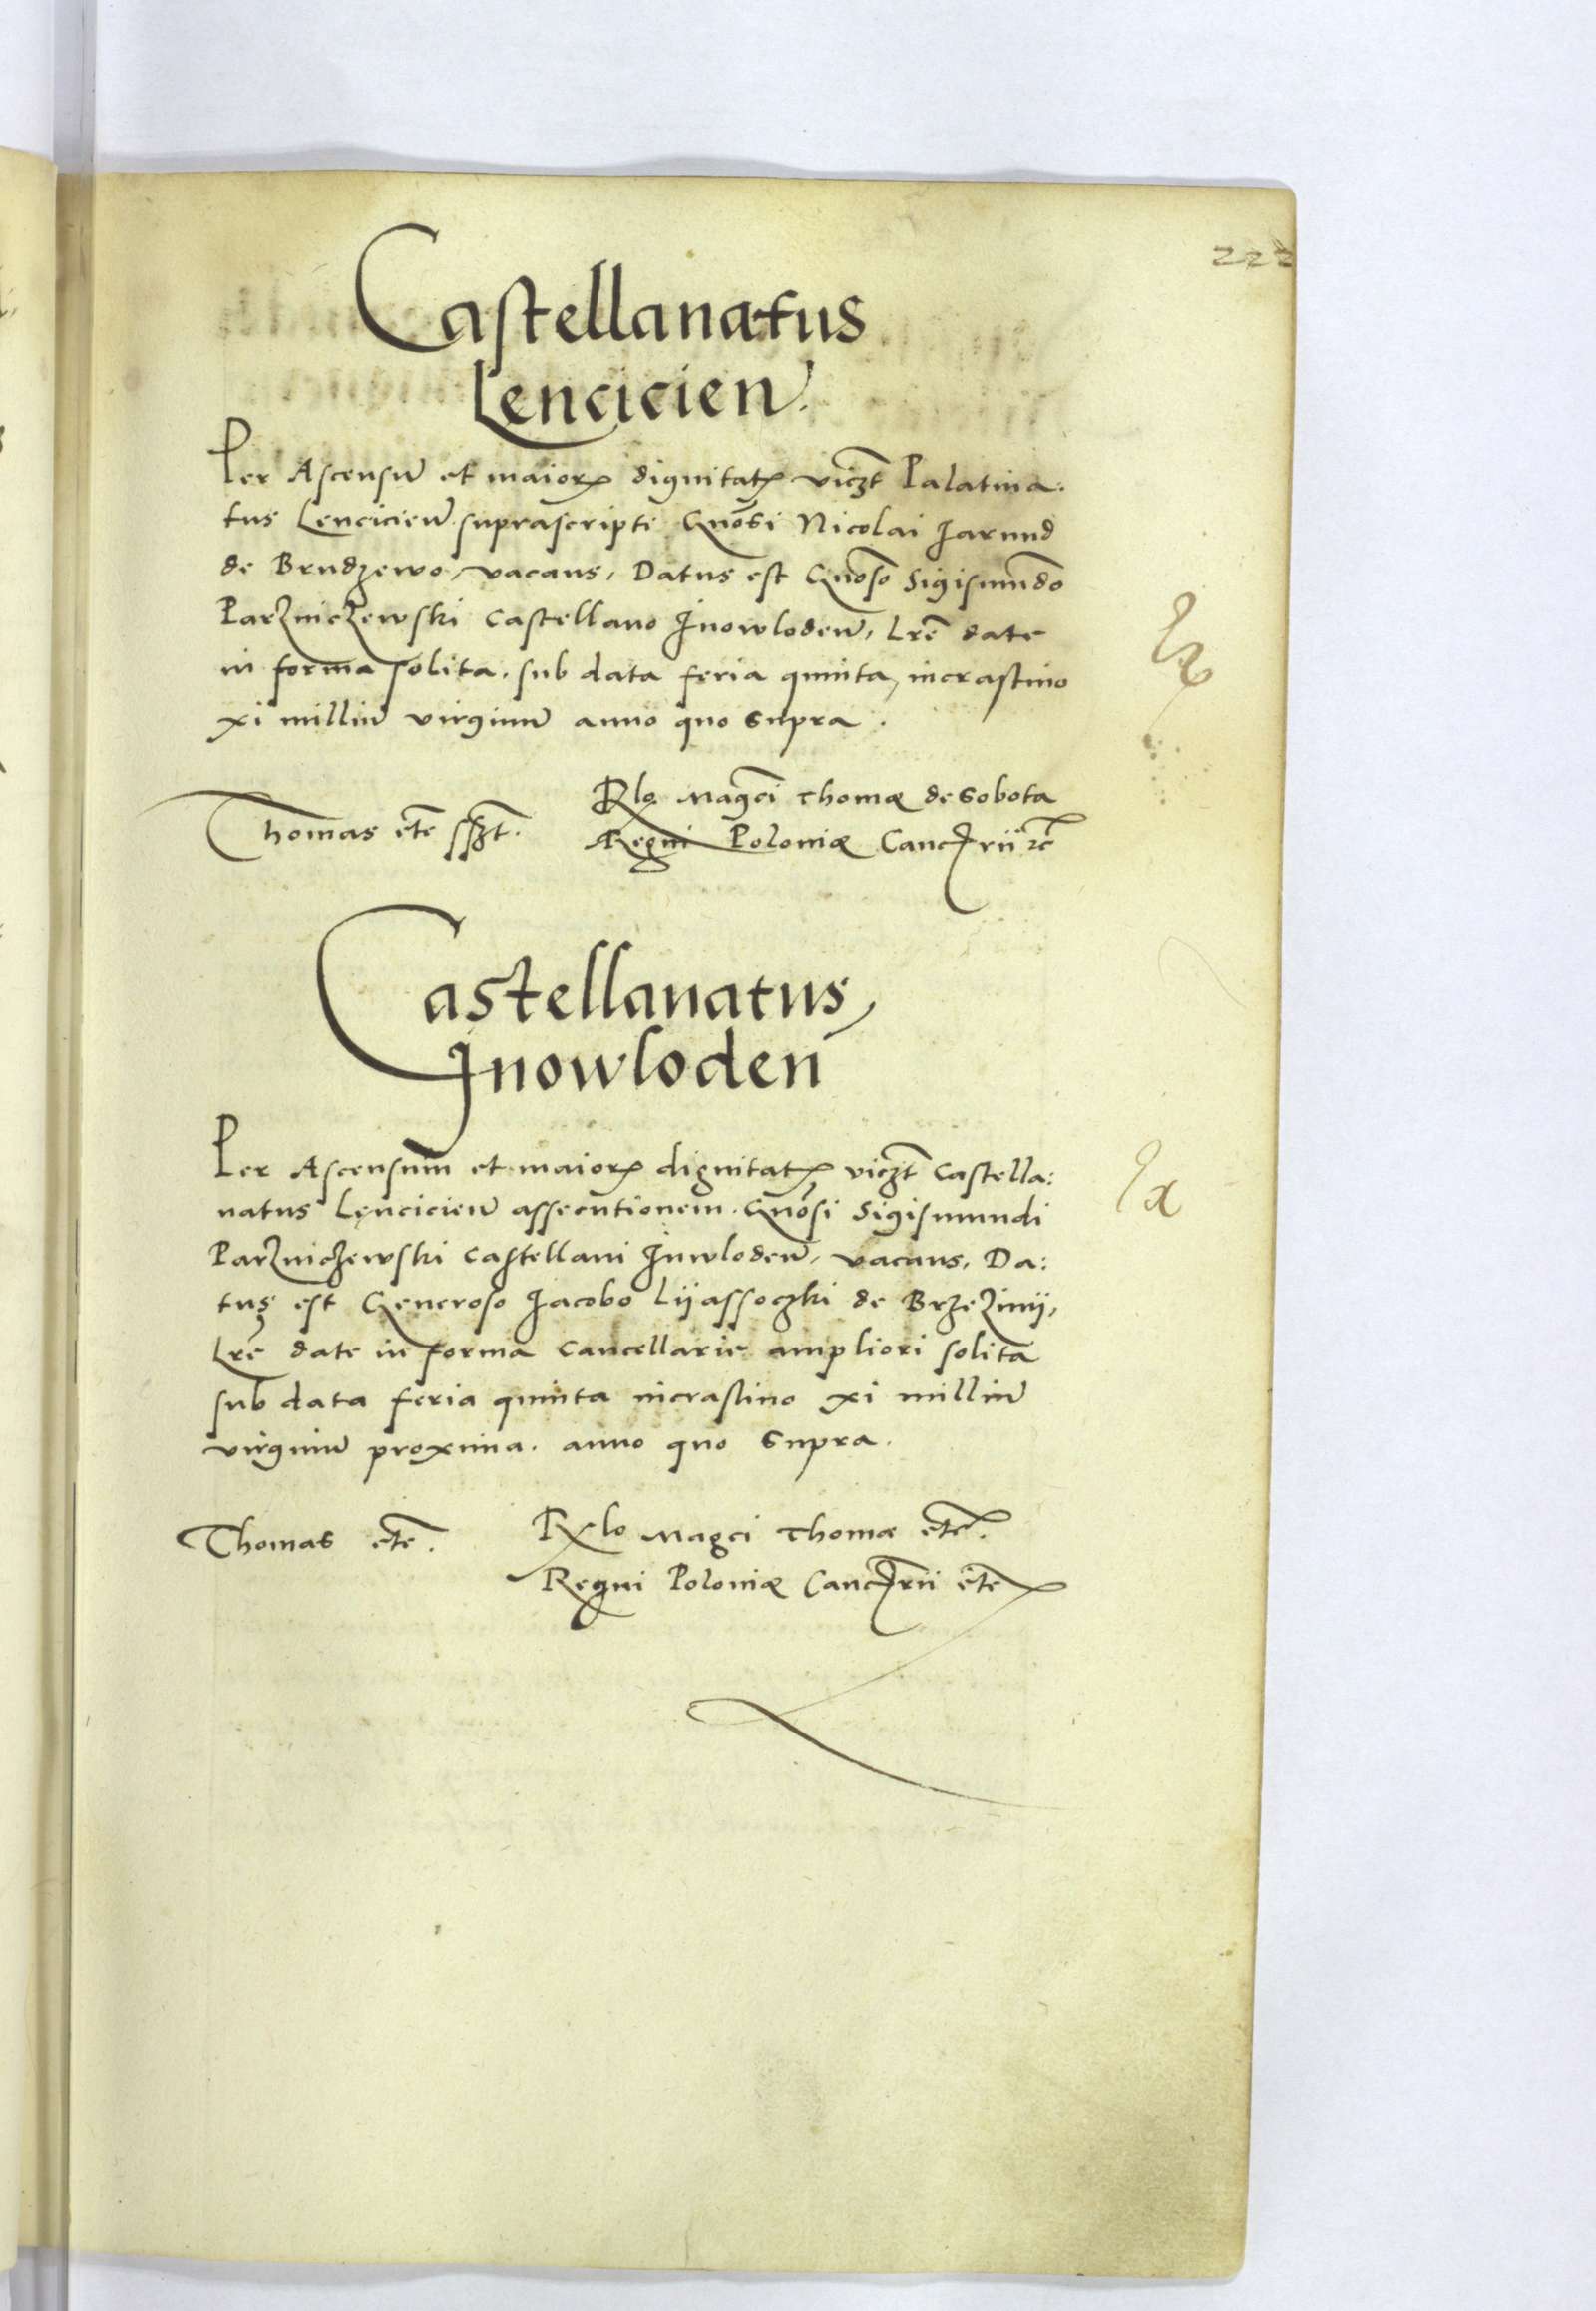 222
Castellanatus
Lencicien̄.
Per Ascensū et maiorẹ dignitatẹ viczt Palatina:
tus Lencicien̄. suprascripti Gnōsi Nicolai Jarund
de Brudzewo, vacans, Datus est Gnōso Sigismundo
Parzniczewski Castellano Jnowloden̄, Lrē date
in forma solita. sub data feria quinta, incrastino
xi milliū virginū anno quo supra.
Thomas etē sszt.
Rlo Magci Thomæ de Sobota
Regni Poloniæ Canclrii etc
Castellanatus
Jnowloden̄
Per Ascensum et maiorẹ dignitatẹ viczt Castella:
natus Lencicien̄ assecutionem. Gnōsi Sigismundi
Parzniczewski Castellani Jnwloden̄, vacans, Da:
tus est Generoso Jacobo Lyassoczki de Brzeziny,
Lrē date in forma Cancellarie ampliori solita
sub data feria quinta incrastino xi milliū
virginū proxima. anno quo supra.
Thomas etē.
Rlo Magci Thomæ etē.
Regni Poloniæ Canclrii etē